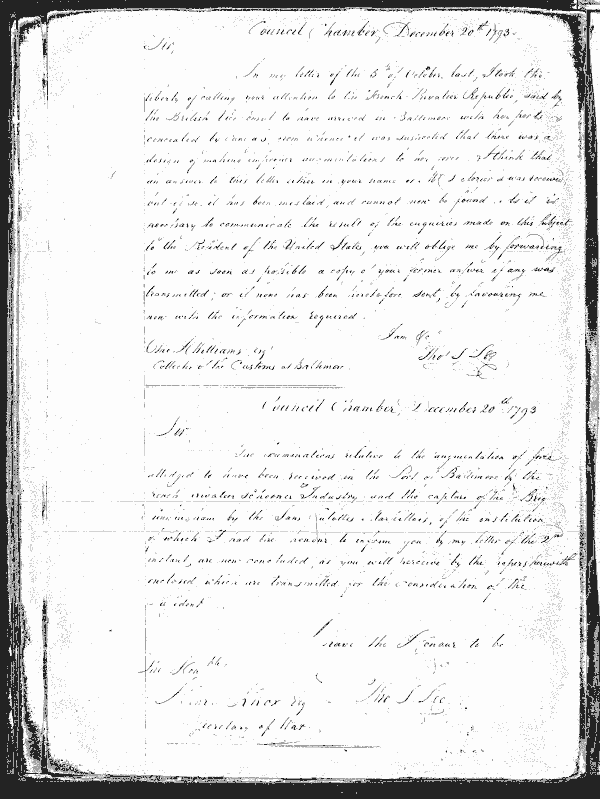 Council Chamber, December 20th 1793.
Sir,
In my letter of the 5th of October last, I took the
liberty of calling your attention to the French Privateer Republic, said by
the British Vice Consul to have arrived in Baltimore with her ports
concealed by canvas, from whence it was suspected that there was a
design of making improper augmentations to her force. I think that
an answer to this letter either in your name or was received
but if so it has been mislaid, and cannot now be found. As it is
necessary to communicate the result of the enquiries made on this subject
to the President of the United States, you will oblige me by forwarding
to me as soon as possible a copy of your former answer if any was
transmitted; or if none has been heretofore sent, by favouring me
now with the information required.
I am &c
Williams esqr
Tho S Lee
Collector of the Customs at Baltimore
Council Chamber, December 20th 1793
Sir,
The examinations relative to the augmentation of force
alledged to have been received in the Port of Baltimore by the
French Privateer Schooner Industry and the capture of the Brig
by the Sans Culottes Marseillois, of the institution
of which I had the honour to inform you by my letter of the 2nd
instant, are now concluded, as you will perceive by the papers herewith
enclosed which are transmitted for the consideration of the
President
I have the Honour to be
The Honble
Henry Knox Esq
Tho S Lee
Secretary of War